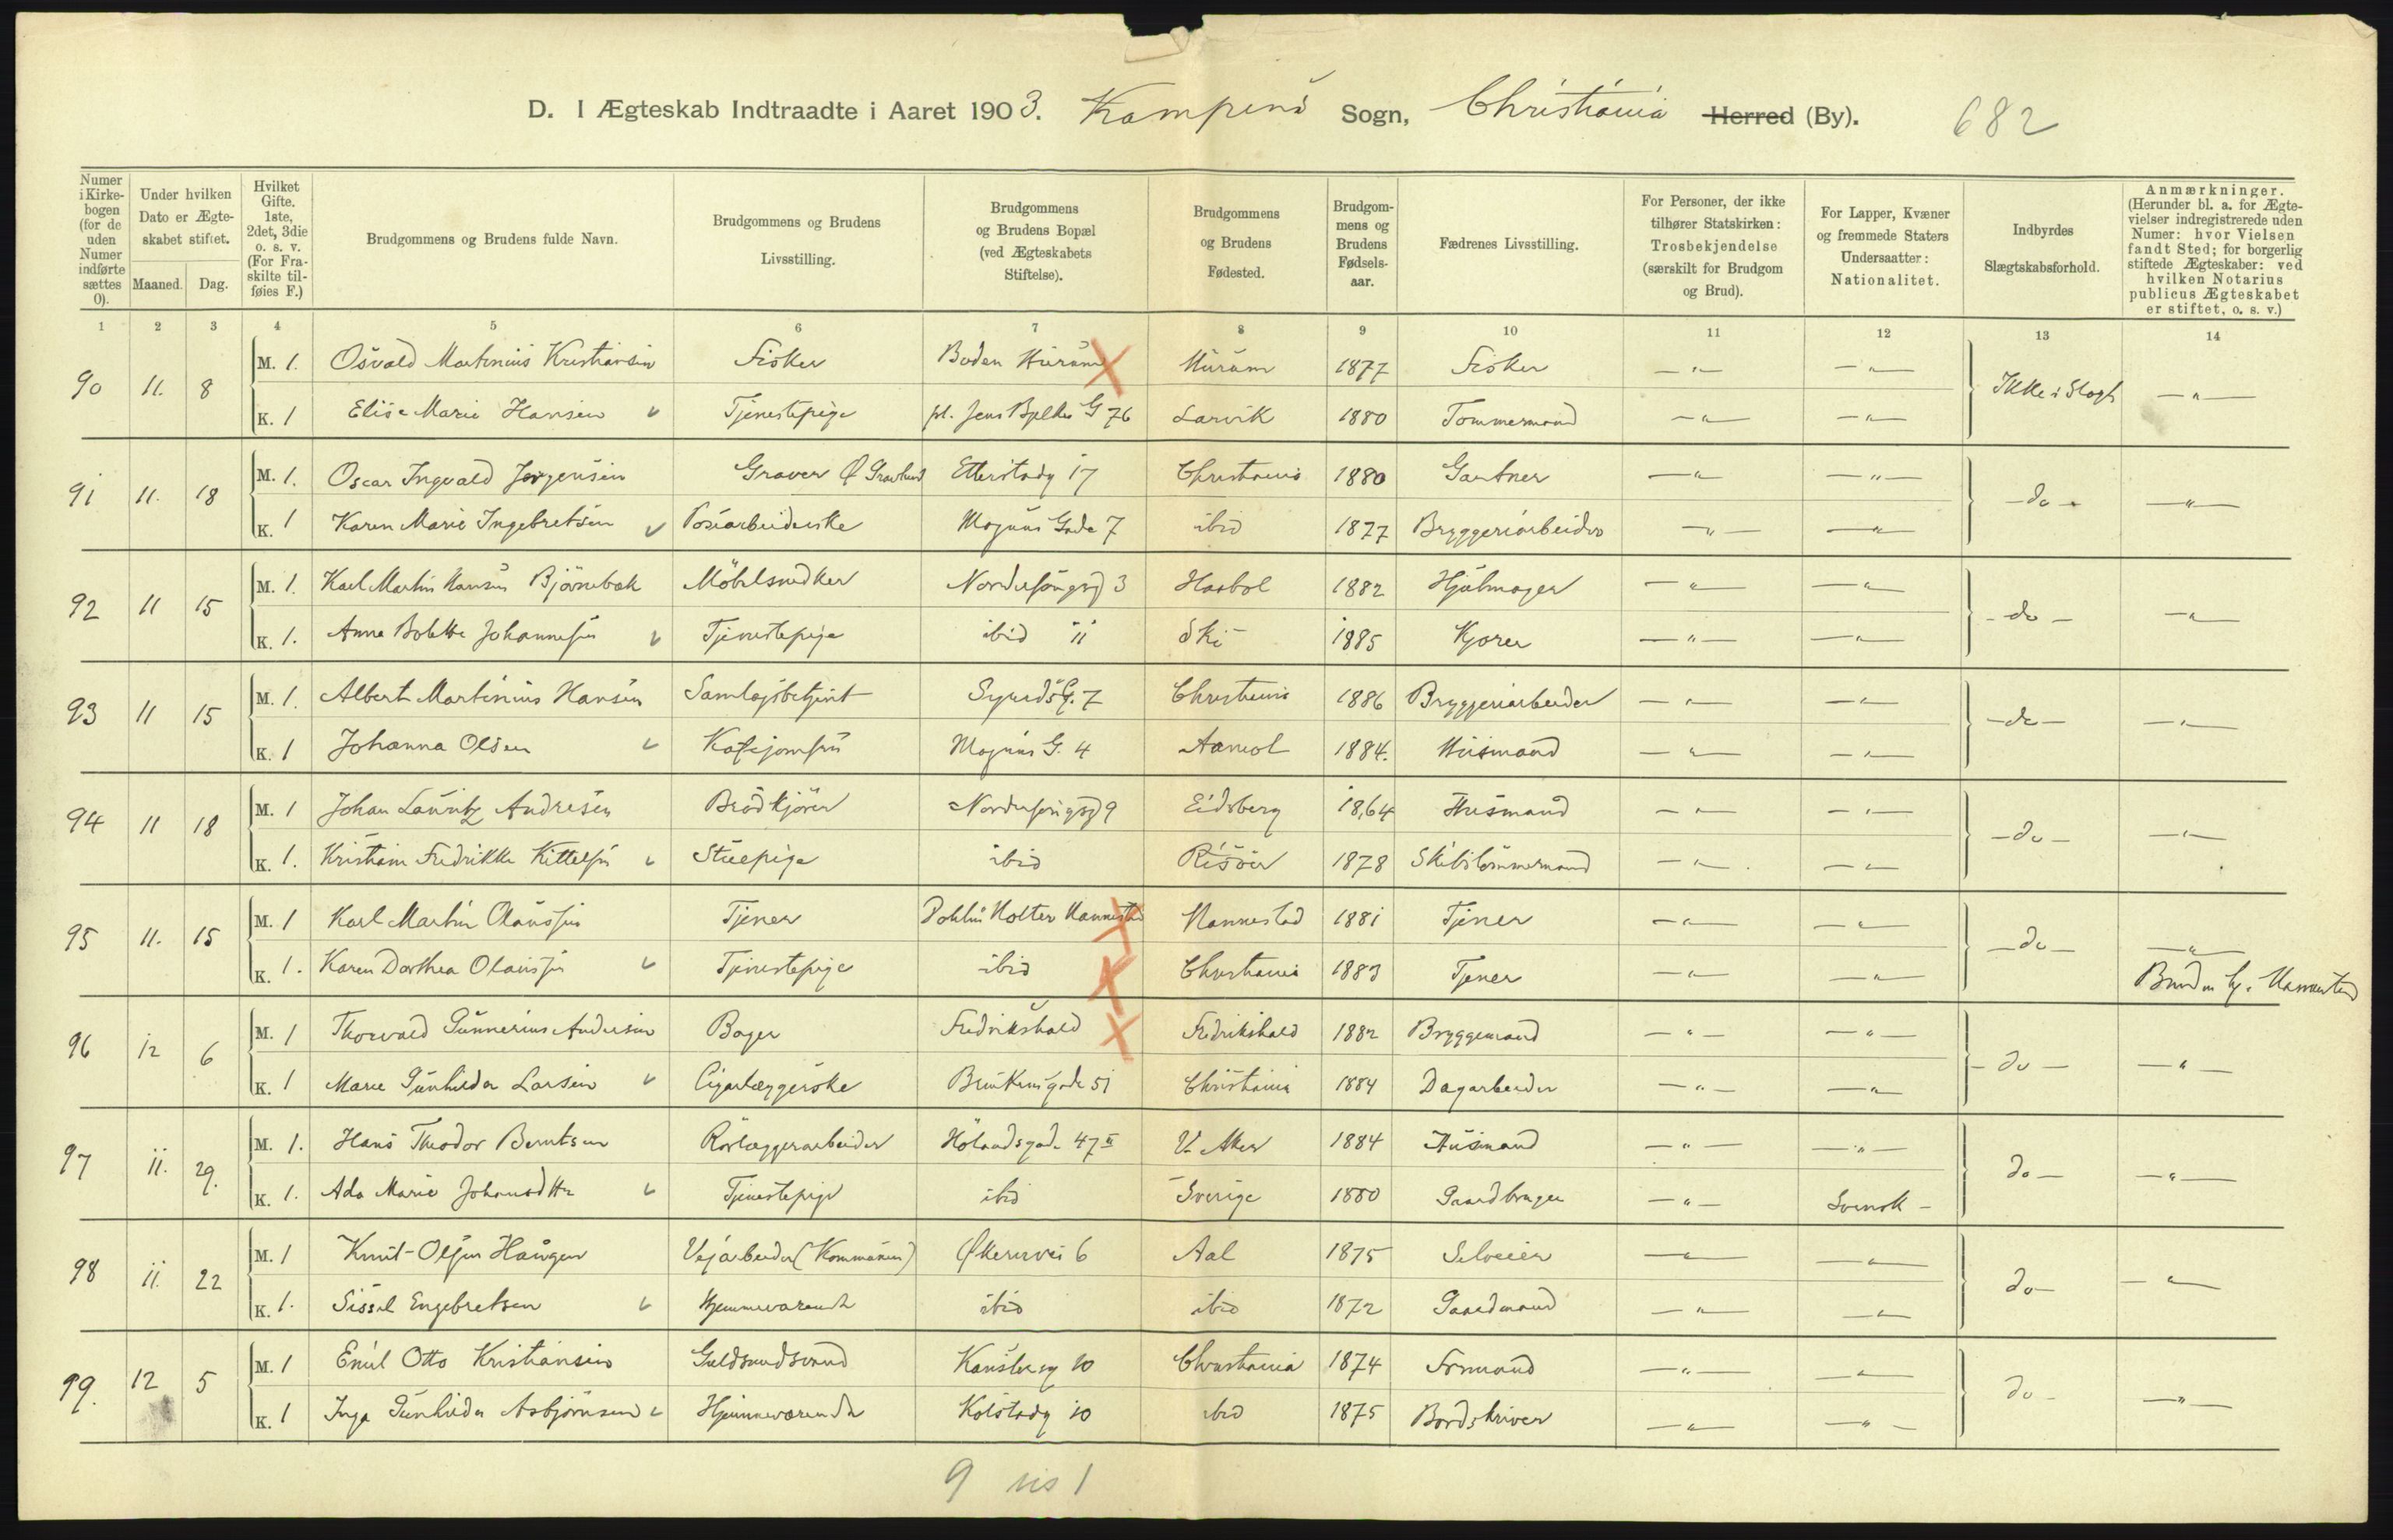 D. I Ægteskab Indtraadte i Aaret 1903. Kampens Sogn, Christiania Herred (By). 682
Numer i Kirke-bogen (for de uden Numer indførte sættes 0). Under hvilken Dato er Ægte-skabet stiftet. Maaned. Dag. Hvilket Gifte. 1ste, 2det, 3die o. s. v. (For Fra-skilte til-føies F.) Brudgommens og Brudens fulde Navn. Brudgommens og Brudens Livsstilling. Brudgommens og Brudens Bopæl (ved Ægteskabets Stiftelse). Brudgommens og Brudens Fødested. Brudgom-mens og Brudens Fødsels-aar. Fædrenes Livsstilling. For Personer, der ikke tilhører Statskirken: Trosbekjendelse (særskilt for Brudgom og Brud). For Lapper, Kvæner og fremmede Staters Undersaatter: Nationalitet. Indbyrdes Slægtskabsforhold. Anmærkninger. (Herunder bl. a. for Ægte-vielser indregistrerede uden Numer: hvor Vielsen fandt Sted; for borgerlig stiftede Ægteskaber: ved hvilken Notarius publicus Ægteskabet er stiftet, o. s. v.)
1 2 3 4 5 6 7 8 9 10 11 12 13 14
90 11. 8 M. 1. Osvald Martinius Kristiansen Fisker Boden Hurum Hurum 1877 Fisker — " — — " — Ikke i Slagt — " —
K. 1 Elise Marie Hansen Tjenestepige Jens Bjelkes G 76 Larvik 1880 Tømmermand — " — — " —
91 11. 18 M. 1. Oscar Ingvald Jørgensen Graver Ø Gravlund Etterstadg 17 Christiania 1880 Gartner — " — — " — do — — " —
K. 1 Karen Marie Ingebretsen Posearbeiderske Magnus Gade 7 ibid 1877 Bryggeriarbeider — " — — " —
92 11 15 M. 1. Karl Martin Hansen Bjørnebæk Möbelsnedker Nordufsengg 3 Haabøl 1882 Hjulmager — " — — " — — do — — " —
K. 1. Anna Bolette Johannesen Tjenestepige ibid 11 Ski 1885 Kjører — " — — " —
93 11 15 M. 1. Albert Martinius Hansen Samlagsbetjent Sigurds G. 7 Christiania 1886 Bryggeriarbeider — " — — " — — do — — " —
K. 1 Johanna Olsen Kafejomfru Magnus G. 4 Aamot 1884. Husmand — " — — " —
94 11 18 M. 1 Johan Lauritz Andresen Brödkjörer 9 Eidsberg 1864 Husmand — " — — " — — do — — " —
K. 1. Kristiane Fredrikke Kittelsen Stuepige ibid Risöer 1878 Skibstömmermand — " — — " —
95 11. 15 M. 1 Karl Martin Olaussen Tjener Holter Nannestad Nannestad 1881 Tjener — " — — " — — do — — " —
K. 1. Karen Dorthea Olaussen Tjenestepige ibid Christiania 1883 Tjener — " — — " — Nannestad
96 12 6 M. 1 Thorvald Gunnerius Andersen Bager Fredrikshald Fredrikshald 1882 Bryggemand — " — — " — — do — — " —
K. 1 Marie Gunhilda Larsen Cigarlæggerske Brinkens gade 51 Christiania 1884 Dagarbeider — " — — " —
97 11. 29. M. 1. Hans Theodor Berntsen Rörlæggerarbeider Hölandsgade 47 II V. Aker 1884 Husmand — " — — " — do — — " —
K. 1. Ada Marie Johansdtr Tjenestepige ibid Sverige 1880 Gaardbruger — " — Svensk —
98 11. 22 M. 1 Knut Olsen Haugen Vejarbeider (Kommunen) Økernvei 6 Aal 1875 Selveier — " — — " — do — — " —
K. 1. Sissel Engebretsen Hjemmeværende ibid ibid 1872 Gaardmand — " — — " —
99. 12 5 M. 1 Emil Otto Kristiansen Guldsmedsvend 10 Christiania 1874 Formand — " — — " — do — — " —
K. 1 Inga Gunhilda Asbjørnsen Hjemmeværende Kolstadg 10 ibid 1875 Bordskriver — " — — " —
9 1